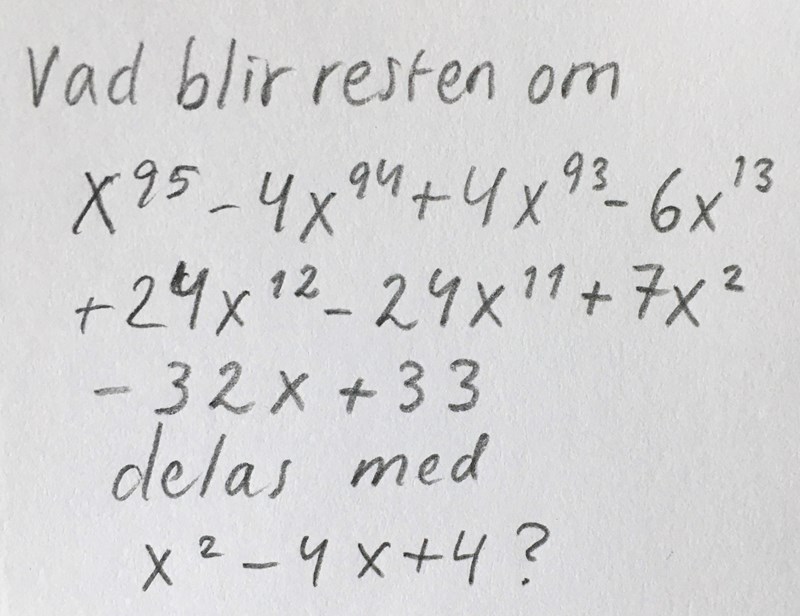 Vad blir resten om
x⁹⁵ - 4x⁹⁴ + 4x⁹³ - 6x¹³
+ 24x¹² - 24x¹¹ + 7x²
- 32x + 33
delas med
x² - 4x + 4?